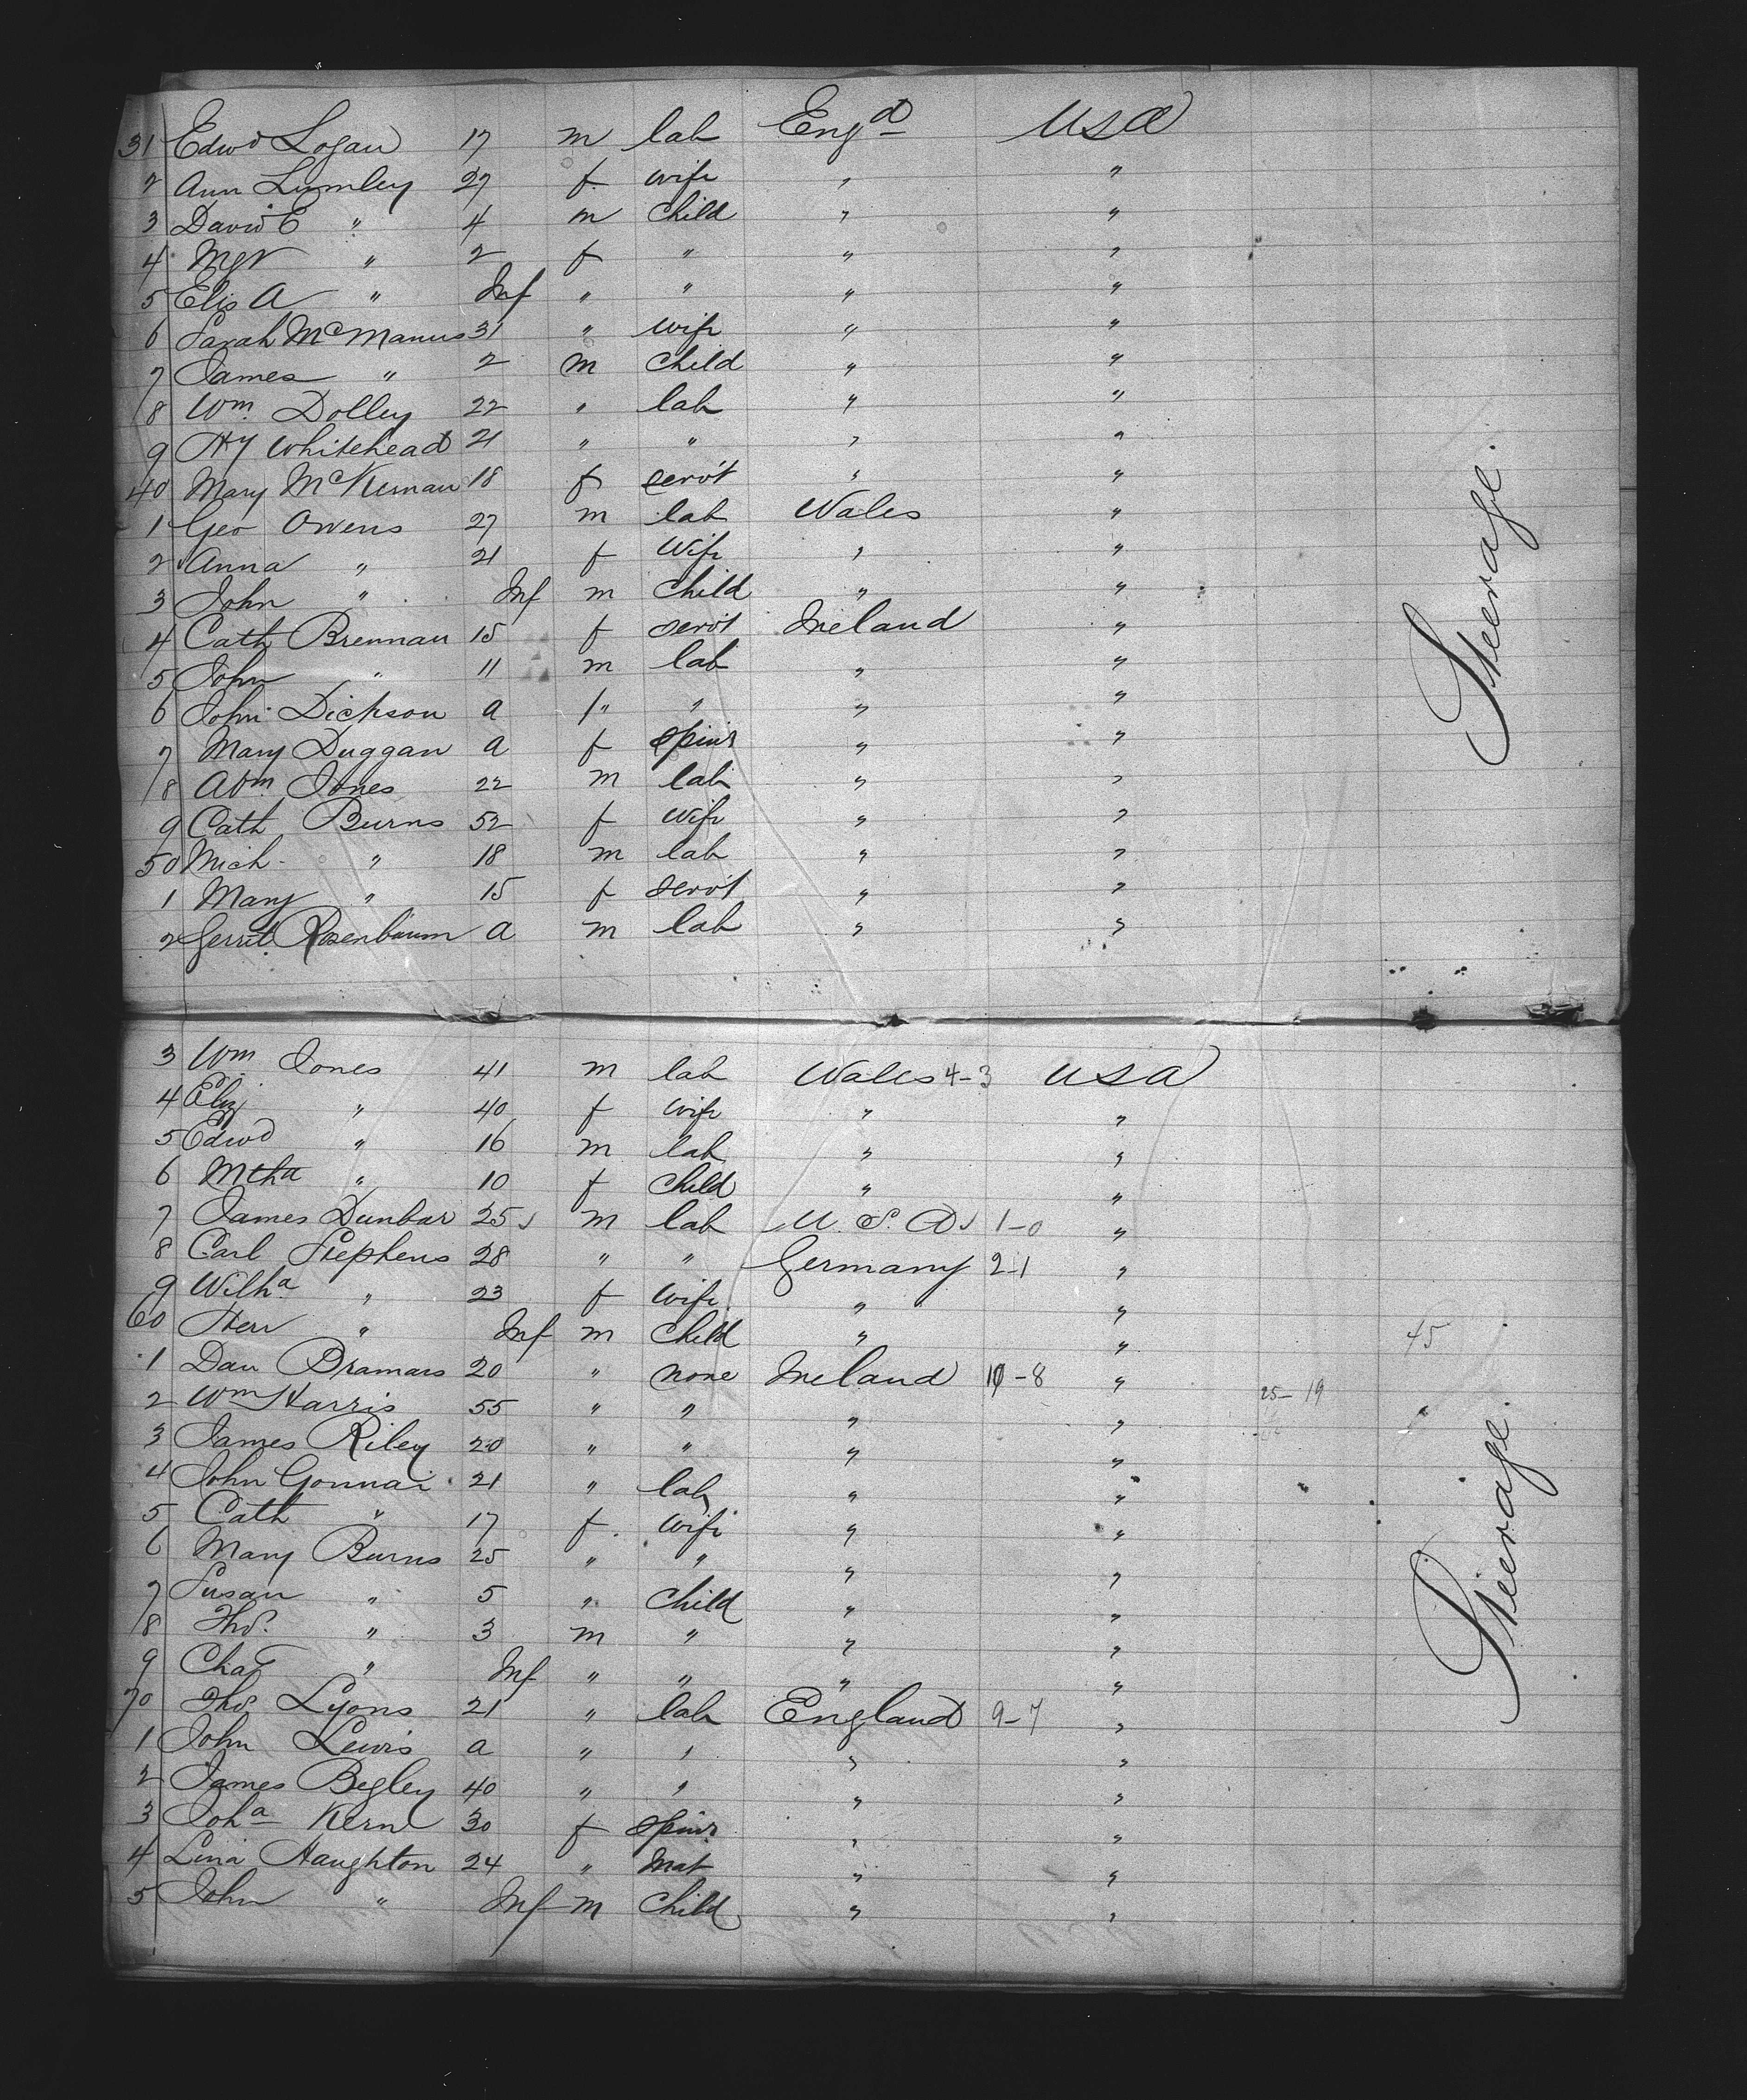 31 Edwd Logan 17 m lab Engd USA
2 Ann Lumley 27 f wife " "
3 David E " 4 m child " "
4 Mgr " 2 f " " "
5 Elis A " Inf " " " "
6 Sarah McManus 31 " wife " "
7 James " 2 m child " "
8 Wm. Dolley 22 " lab " "
9 Hy Whitehead 21 " " " "
40 Mary McKernan 18 f servt " "
1 Geo Owens 27 m lab Wales "
2 Anna " 21 f wife " "
3 John " Inf m child " "
4 Cath Brennan 15 f servt Ireland "
5 John " 11 m lab " "
6 John Dickson a " " " "
7 Mary Duggan a f spinr " "
8 Abm. Jones 22 m lab " "
9 Cath Burns 52 f wife " "
50 Mich " 18 m lab " "
1 Mary " 15 f servt " "
2 Gerrit Rosenbaum a m lab " "
Steerage.
3 Wm Jones 41 m lab Wales 4-3 USA
4 Eliz " 40 f wife " "
5 Edwd " 16 m lab " "
6 Mtha " 10 f child " "
7 James Dunbar 25 m lab U.S.A 1-0 "
8 Carl Stephens 28 " " Germany 2-1 "
9 Wilha " 23 f wife " "
60 Herr " Inf m child " " 45
1 Dan Bramars 20 " none Ireland 10-8 " 25-19
2 Wm Harris 55 " " " "
3 James Riley 20 " " " "
4 John Gonnai 21 " lab " "
5 Cath " 17 f wife " "
6 Mary Burns 25 " " " "
7 Susan " 5 " child " "
8 Thos. " 3 m " " "
9 Chas " Inf " " " "
70 Thos Lyons 21 " lab England 9-7 "
1 John Lewis a " " " "
2 James Begley 40 " " " "
3 Joha Kern 30 f spinr " "
4 Lina Haughton 24 " mat " "
5 John " Inf m child " "
Steerage.